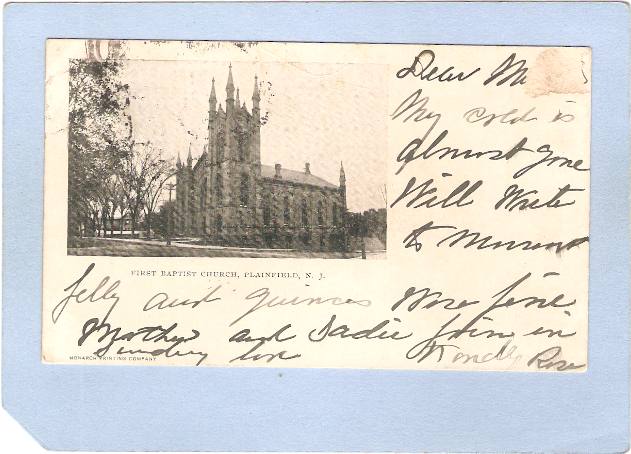 Dear M
My cold is
almost gone
Will Write
to
FIRST BAPTIST CHURCH, PLAINFIELD, N. J.
Jelly and quinces were fine
Mother and Sadie join in
Sending love
Rose
MONARCH PRINTING COMPANY